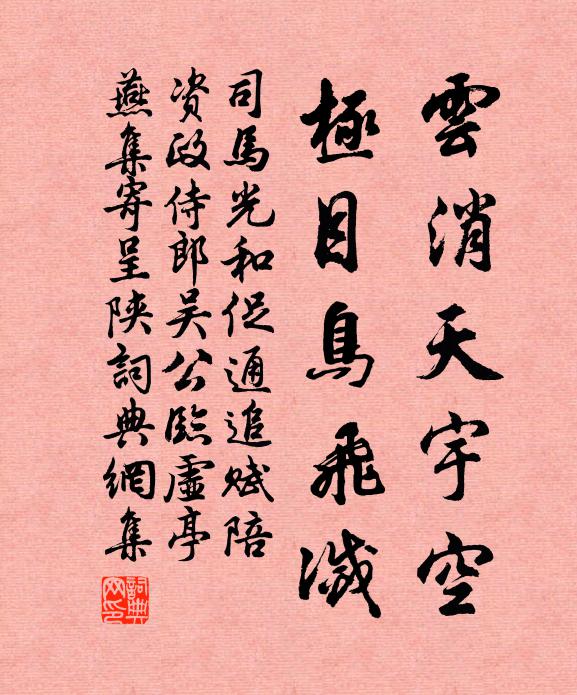 雲消天宇空
極目鳥飛滅
司馬光和促通追賦陪
资政侍郎吴公臨虛亭
燕集寄呈陝詞典網集
詞典網印